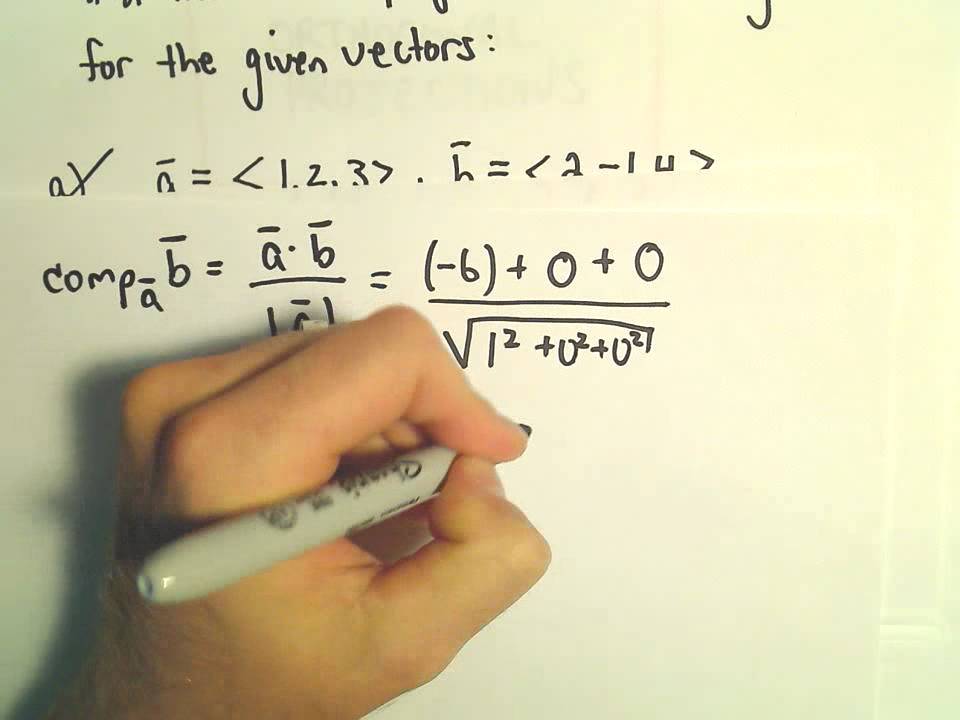 for the given vectors:
a) ā = <1, 2, 3>, b̄ = <2 -1 4>
comp_ā b̄ = ā · b̄ / |ā| = (-6) + 0 + 0 / √(1² + 0² + 0²)